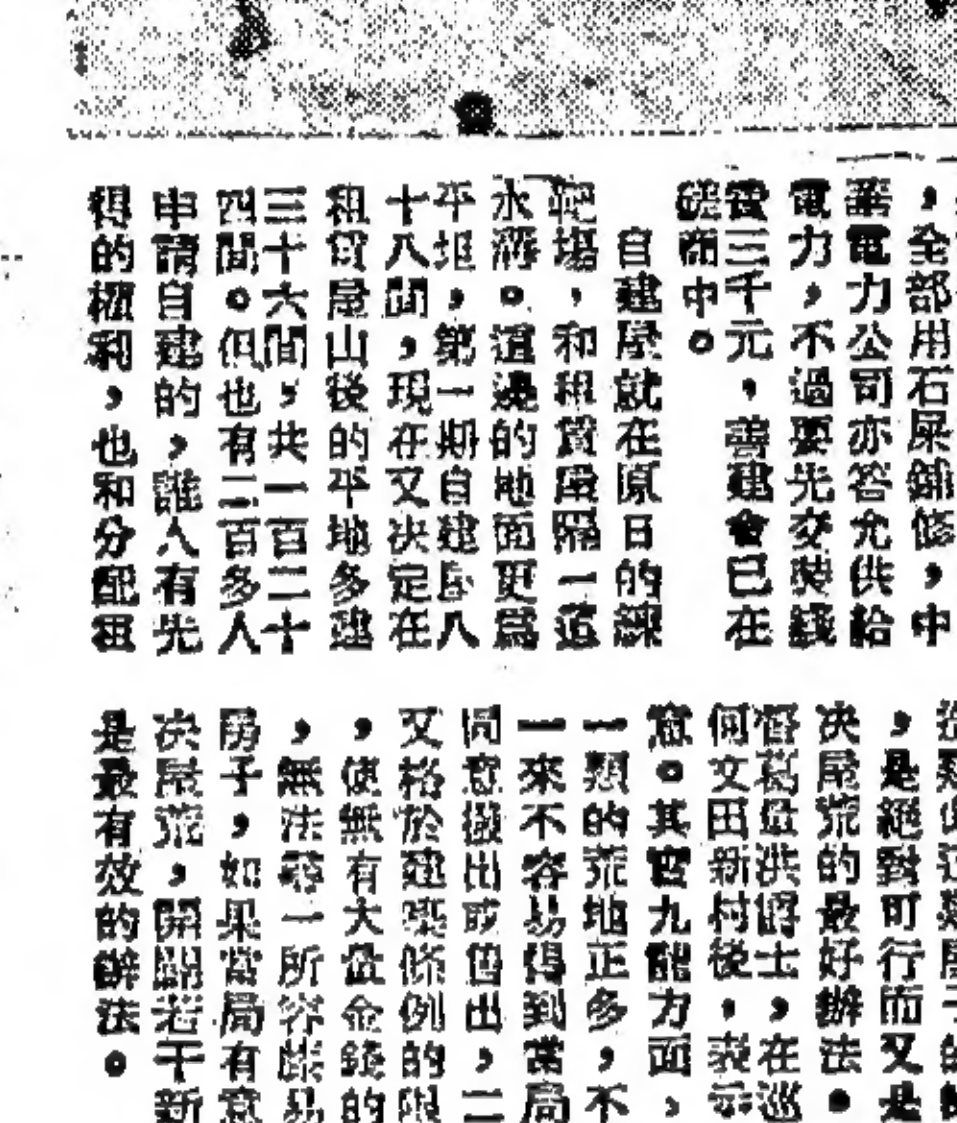 ，全部用石屎鋪修，中
華電力公司亦答允供給
電力，不過要先交裝錢
費三千元，善建會已在
磋商中。
自建屋就在原日的練
靶場，和租賃屋隔一道
水溝。這邊的地面更為
平坦，第一期自建屋八
十八間，現在又決定在
租賃屋山後的平地多建
三十六間，共一百二十
四間。但也有二百多人
申請自建的，誰人有先
得的權利，也和分配租
，是絕對可行而又是
決屋荒的最好辦法。
督葛量洪爵士，在巡
何文田新村後，表示
意。其實九龍方面，
一類的荒地正多，不
一來不容易得到當局
同意撥出或售出，二
又格於建築條例的限
，使無有大量金錢的
，無法尋一所容易
房子，如果當局有意
決屋荒，開闢若干新
是最有效的辦法。